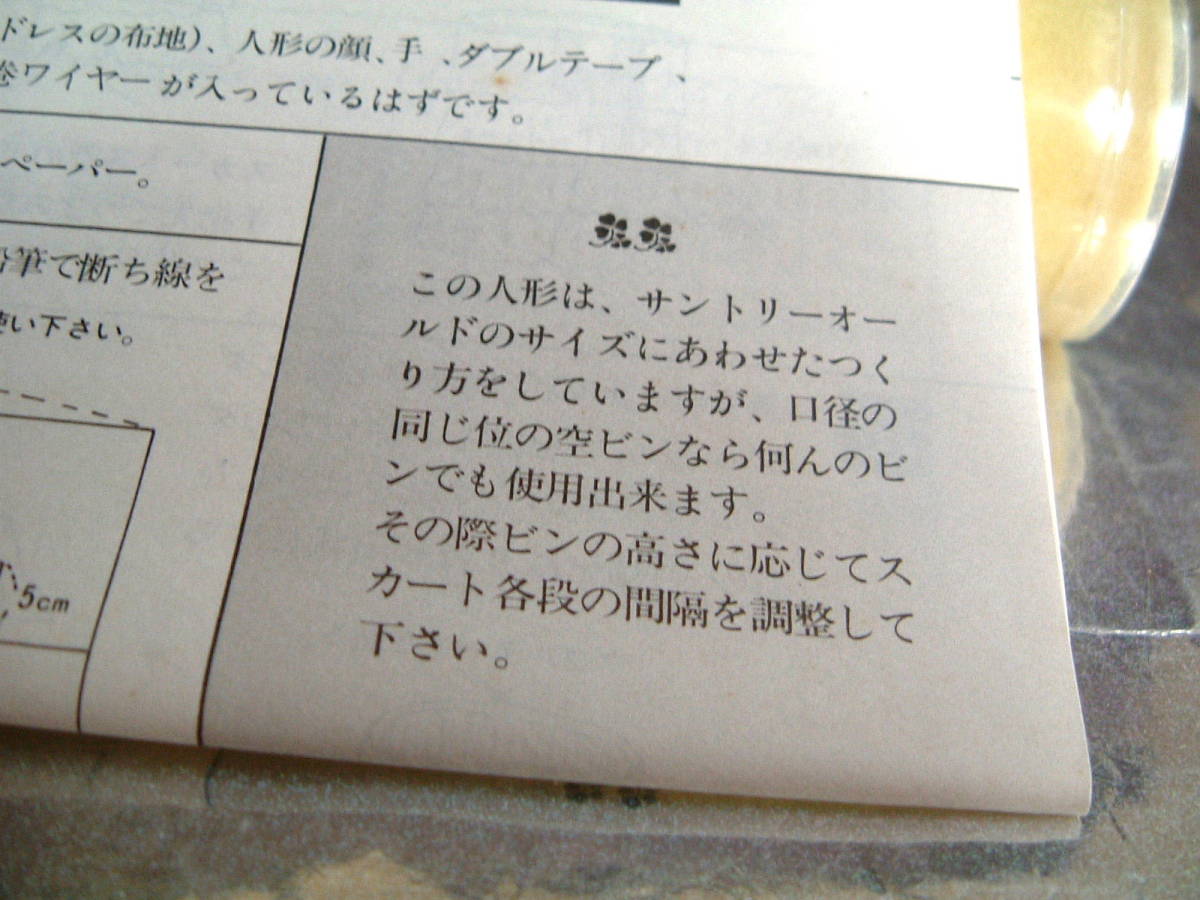 ドレスの布地)、人形の顔、手、ダブルテープ、
巻ワイヤーが入っているはずです。
ペーパー。
鉛筆で断ち線を
使い下さい。
5cm
この人形は、サントリーオー
ルドのサイズにあわせたつく
り方をしていますが、口径の
同じ位の空ビンなら何んのビ
ンでも使用出来ます。
その際ビンの高さに応じてス
カート各段の間隔を調整して
下さい。